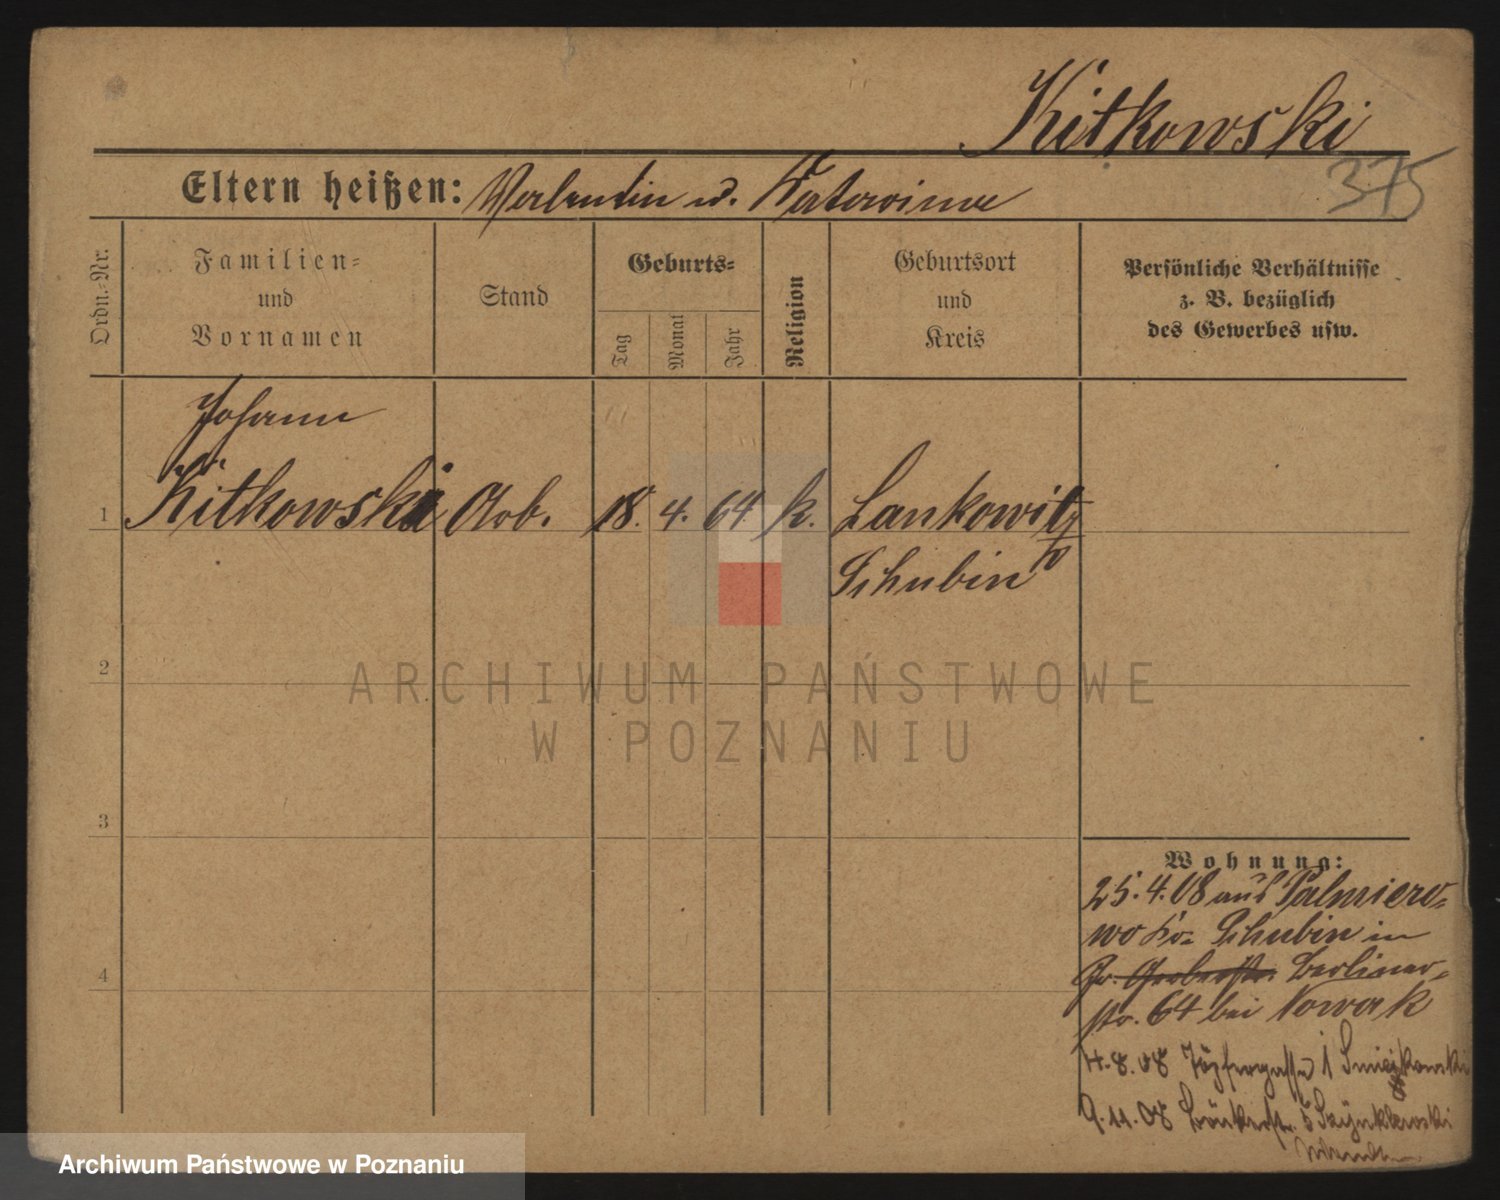 Kitkowski
375
Eltern heißen: Valentin u.
Ordn.-Nr.
Familien-
und
Vornamen
Stand
Geburts-
Tag
Monat
Jahr
Religion
Geburtsort
und
Kreis
Persönliche Verhältnisse
z. B. bezüglich
des Gewerbes usw.
Johann
1 Kitkowski Arb. 18. 4. 64 k. Lankowitz
Schubin
2
3
4
Wohnung:
25.4.08 aus Palmiero-
wo Kr. Schubin in
Gr. Gerberstr. Berliner-
str. 64 bei Nowak
4.8.08 Töpfergasse 1
9.11.08 5
ARCHIWUM PAŃSTWOWE
W POZNANIU
Archiwum Państwowe w Poznaniu